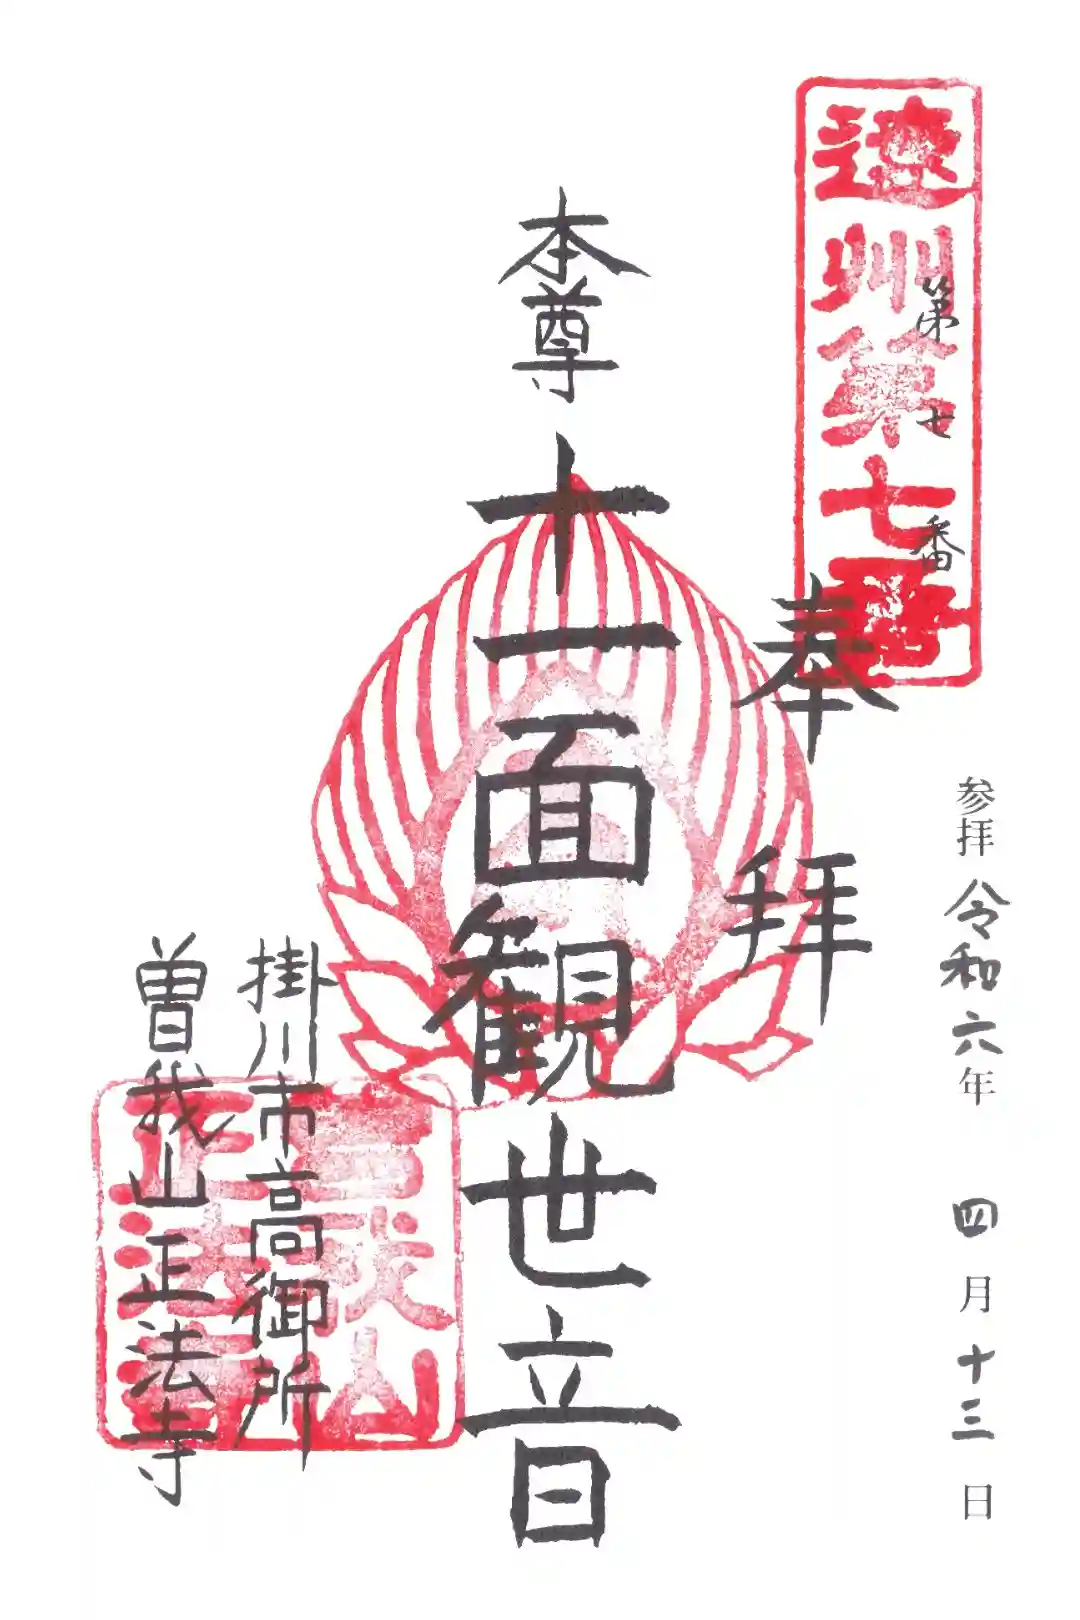 遠州第七番
第七番
奉拝
参拝 令和六年 四月十三日
本尊 十一面観世音
掛川市高御所
曽我山正法寺
曽我山
正法寺